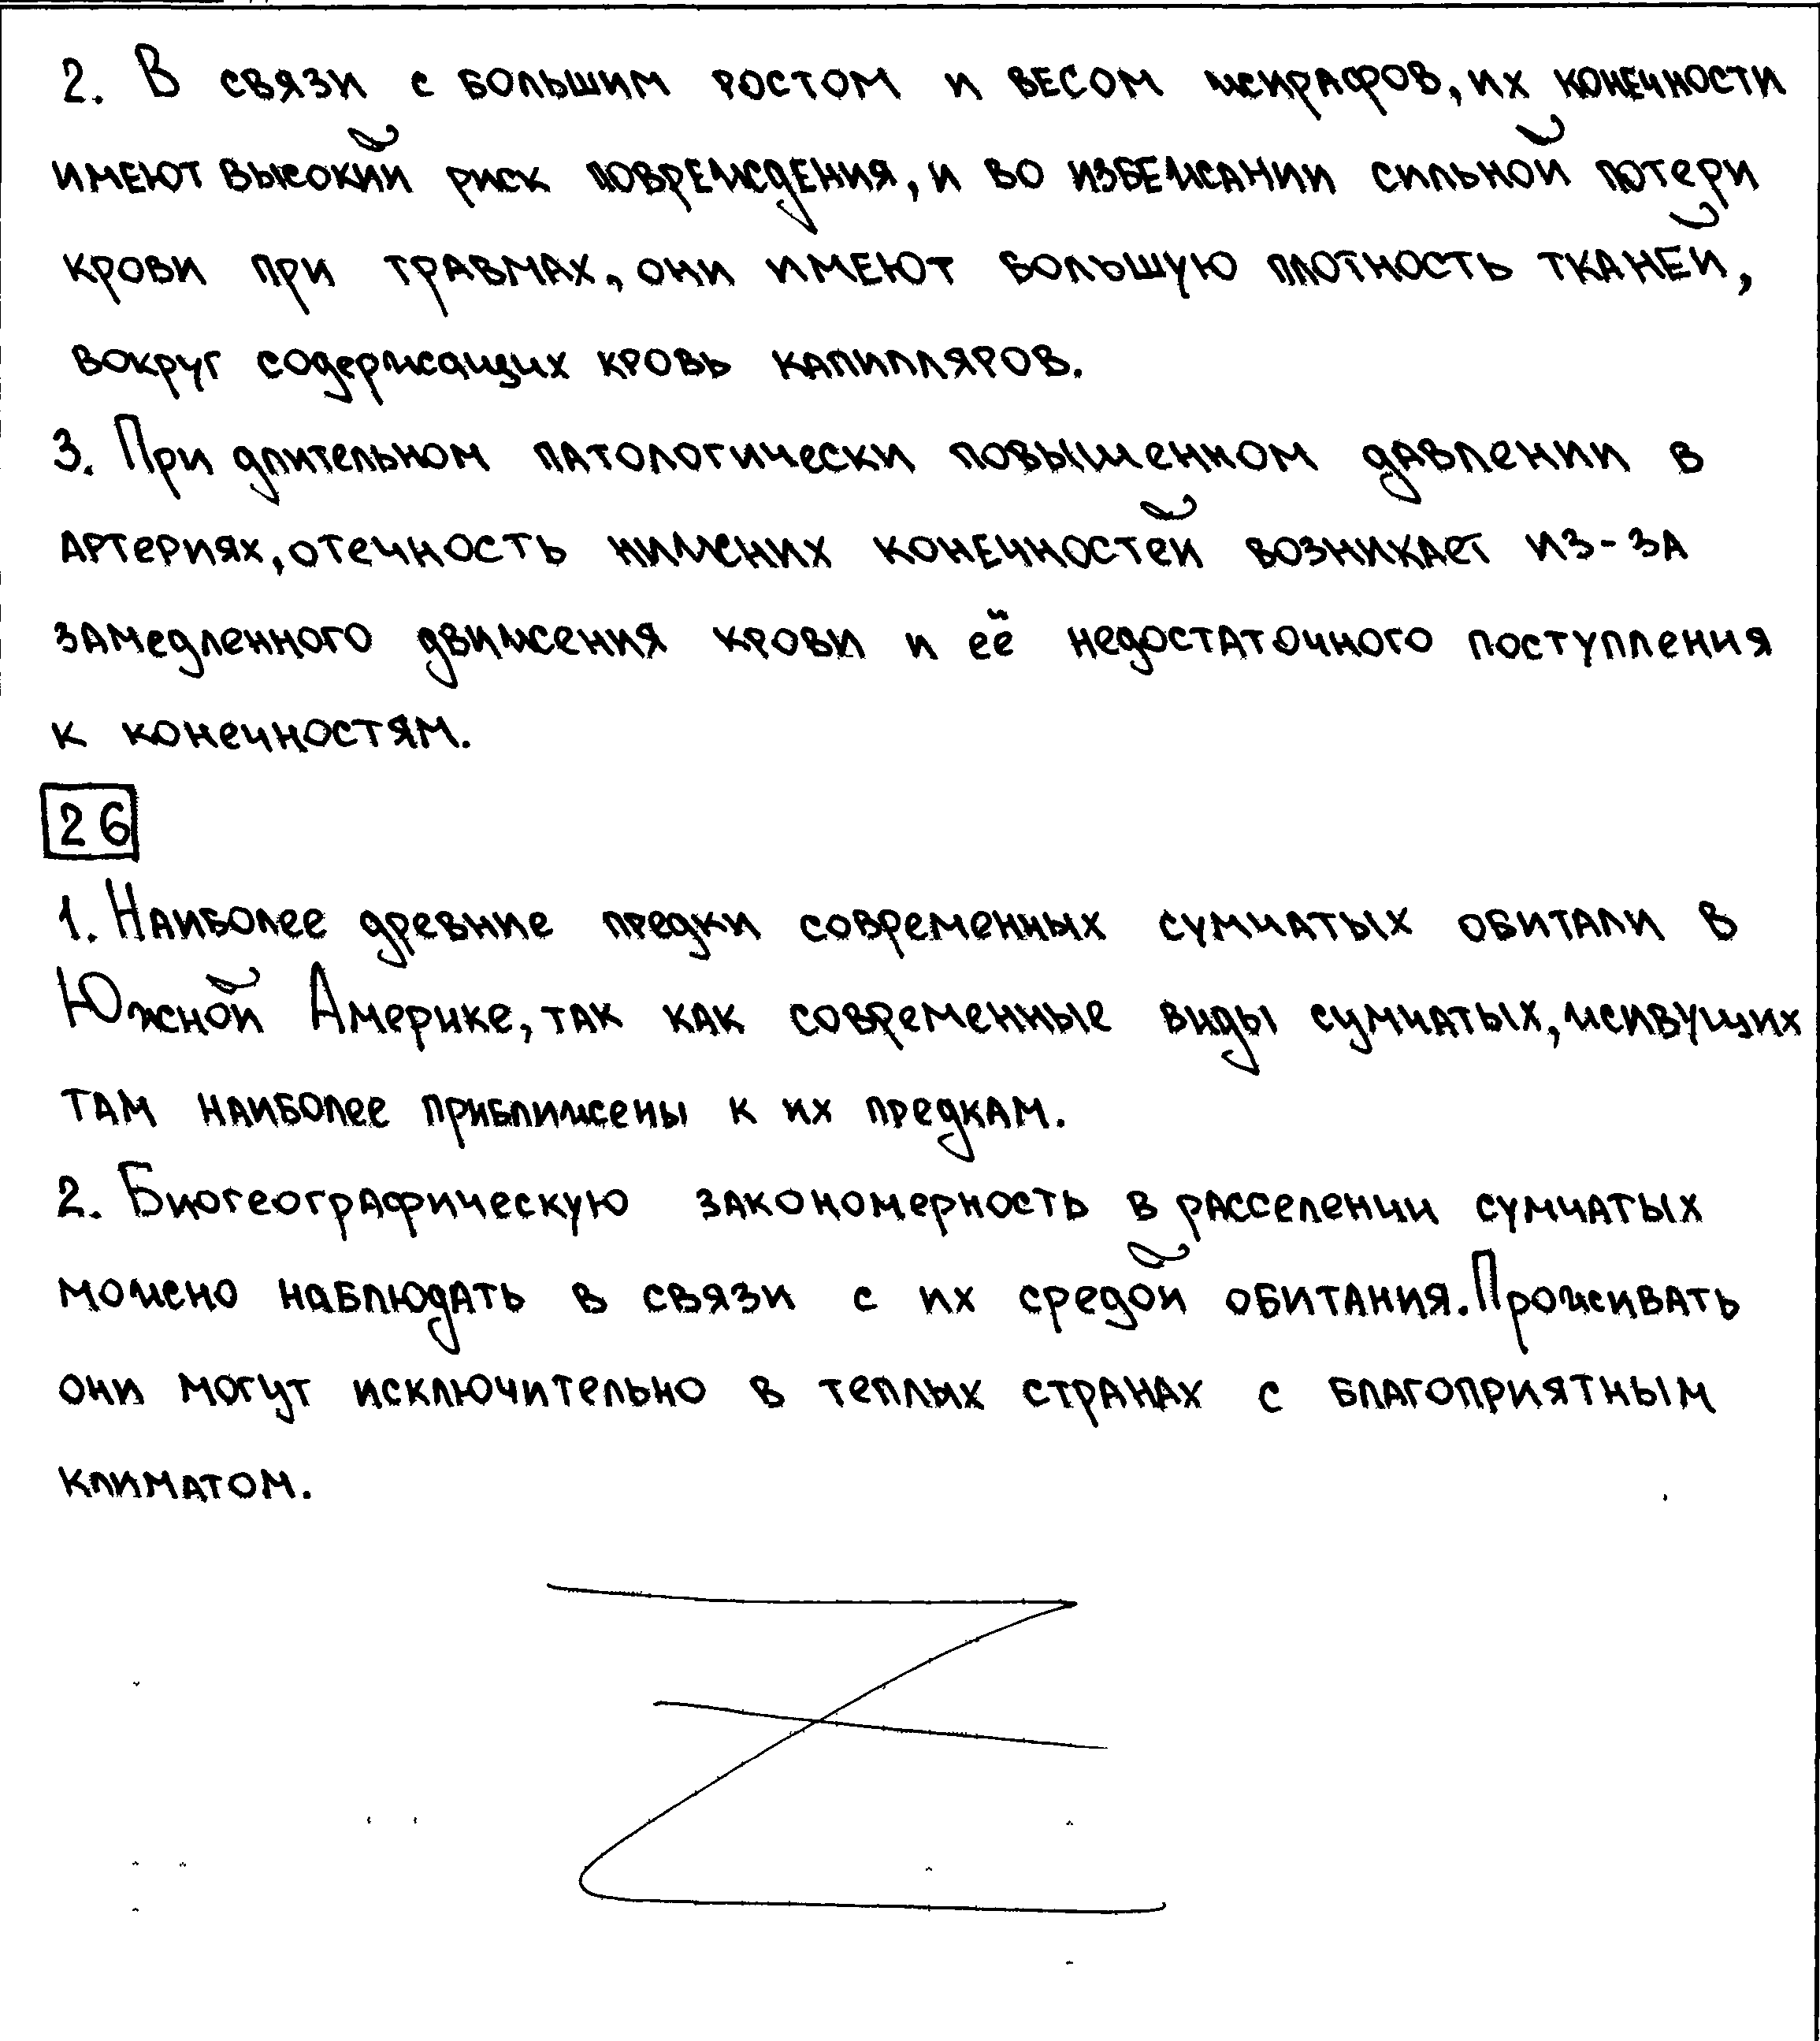 2. В связи с большим ростом и весом жирафов, их конечности
имеют высокий риск повреждения, и во избежании сильной потери
крови при травмах, они имеют большую плотность тканей,
вокруг содержащих кровь капилляров.
3. При длительном патологически повышенном давлении в
артериях, отечность нижних конечностей возникает из-за
замедленного движения крови и её недостаточного поступления
к конечностям.
26
1. Наиболее древние предки современных сумчатых обитали в
Южной Америке, так как современные виды сумчатых, живущих
там наиболее приближены к их предкам.
2. Биогеографическую закономерность в расселении сумчатых
можно наблюдать в связи с их средой обитания. Проживать
они могут исключительно в теплых странах с благоприятным
климатом.